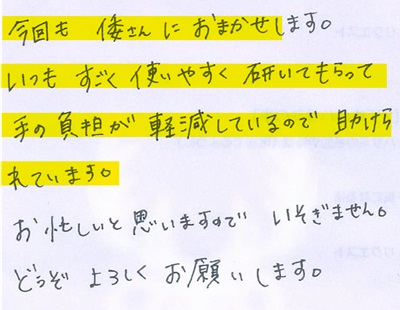 今回も 倭さんに おまかせします。
いつも すごく 使いやすく 研いてもらって
手の負担が 軽減しているので 助けら
れています。
お忙しいと思いますので いそぎません。
どうぞ よろしく お願いします。